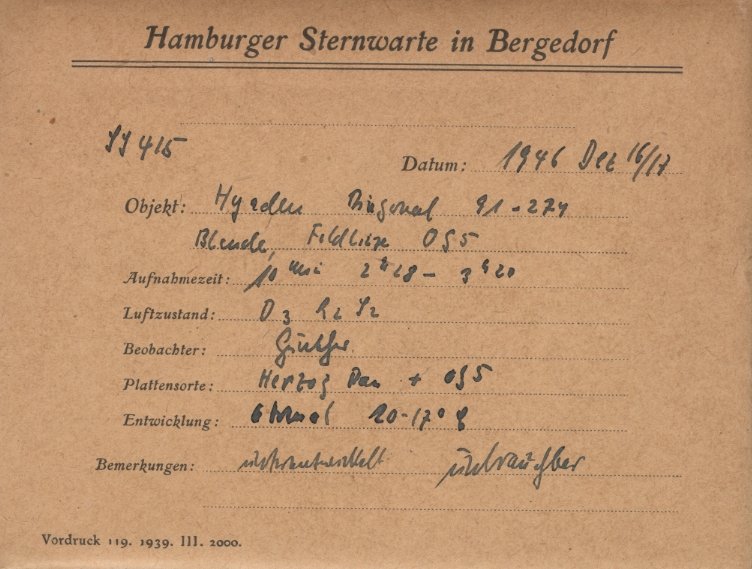 Hamburger Sternwarte in Bergedorf
415
Datum: 1946 Dez 16/17
Objekt: Hyaden Diagonal 91-274
Blende, Feldlinse OG5
Aufnahmezeit: 10 min 2h28 - 3h20
Luftzustand: D3 R2 S2
Beobachter: Günther
Plattensorte: Herzog Pan + OG5
Entwicklung: 20-17°
Bemerkungen: unterentwickelt unbrauchbar
Vordruck 119. 1939. III. 2000.